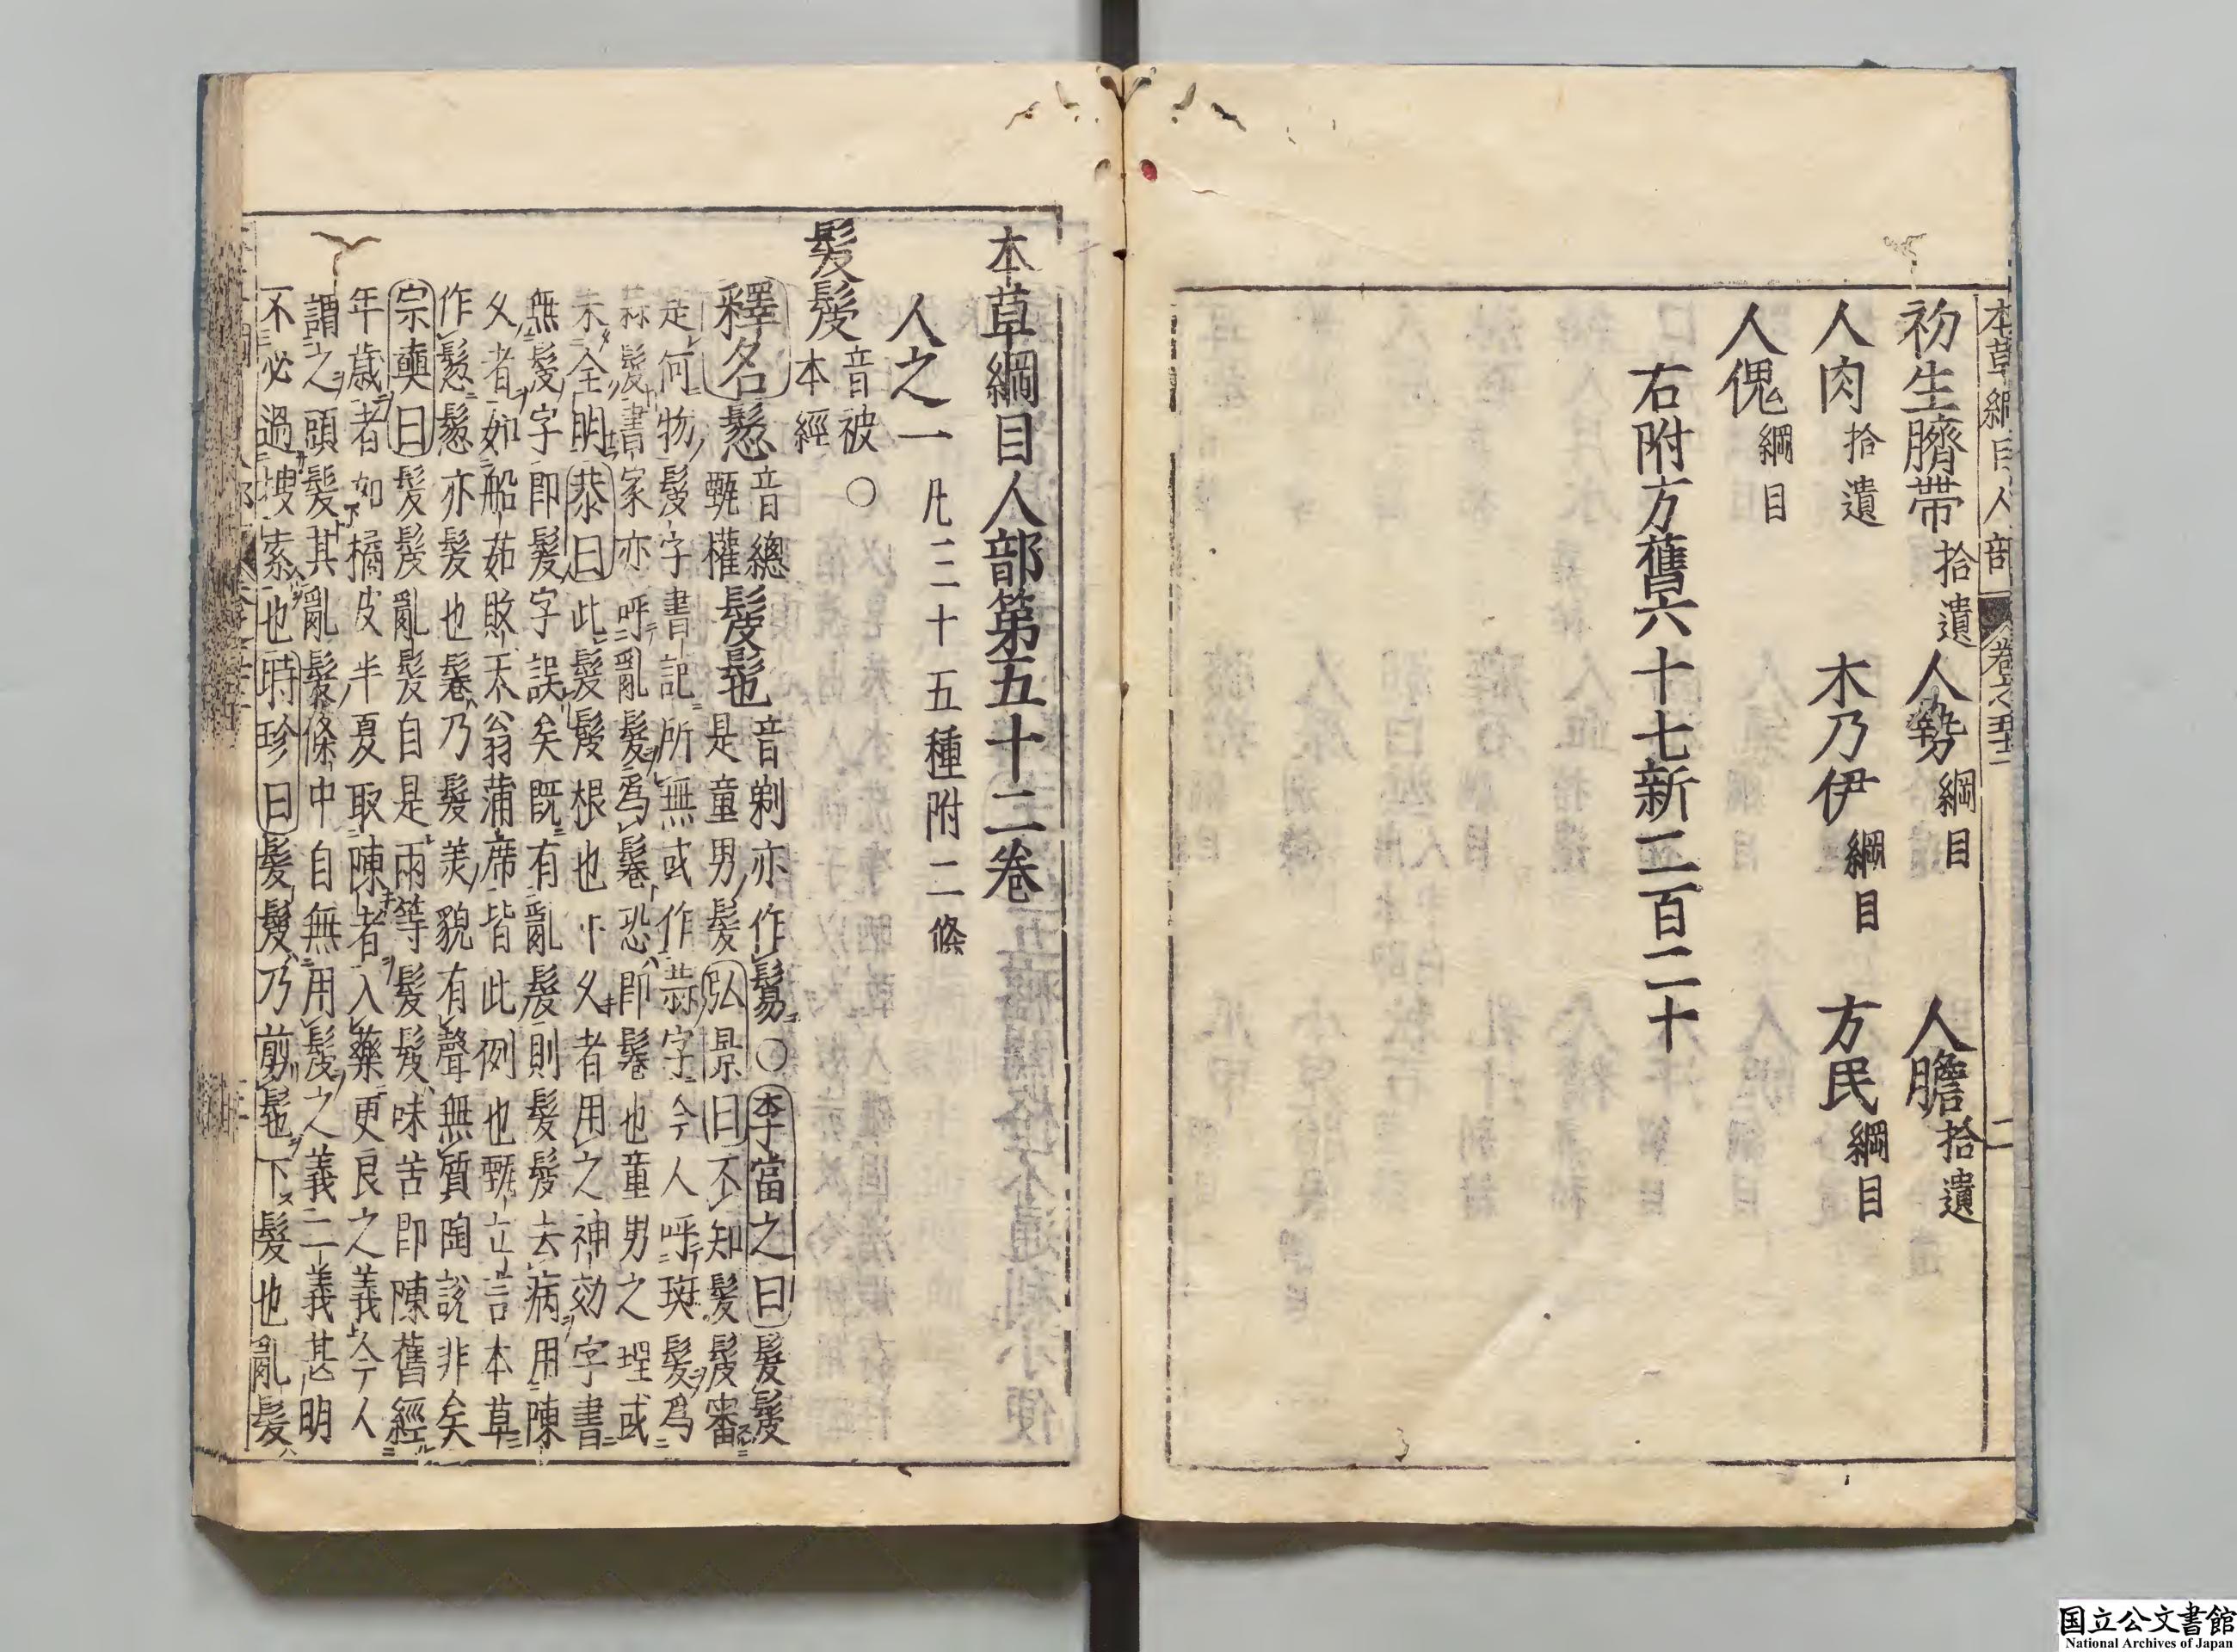 本草綱目人部
卷之五十二
二
初生臍帶拾遺 人勢綱目 人膽拾遺
人肉拾遺 木乃伊綱目 方民綱目
人傀綱目
右附方舊六十七新二百二十
本草綱目人部第五十二卷
人之一凡三十五種附二條
髮髲音被○本經
釋名鬊音總甄權髲髢音剃亦作鬄○李當之曰髮髲
是童男髮弘景曰不知髮髲審
是何物髲字書記所無或作蒜字今人呼斑髮爲
蒜髮書家亦呼亂髮爲鬈恐即鬈也童男之理或
未全明恭曰此髮髲根也年久者用之神効字書
無髲字即髮字誤矣既有亂髮則髮髲去病用陳
久者如船茹敗天翁蒲席皆此例也甄立言本草
作鬊鬊亦髮也鬈乃髮美貌有聲無質陶説非矣
宗奭曰髮髲亂髮自是兩等髮髲味苦即陳舊經
年歳者如橘皮半夏取陳者入藥更良之義今人
謂之頭髲其亂髮條中自無用髲之義二義甚明
不必過搜索也時珍曰髮髲乃剪髢下髮也亂髮
国立公文書館
National Archives of Japan